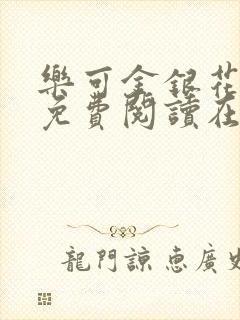 樂可金銀花
免費閱讀在
龍門諒惠廣